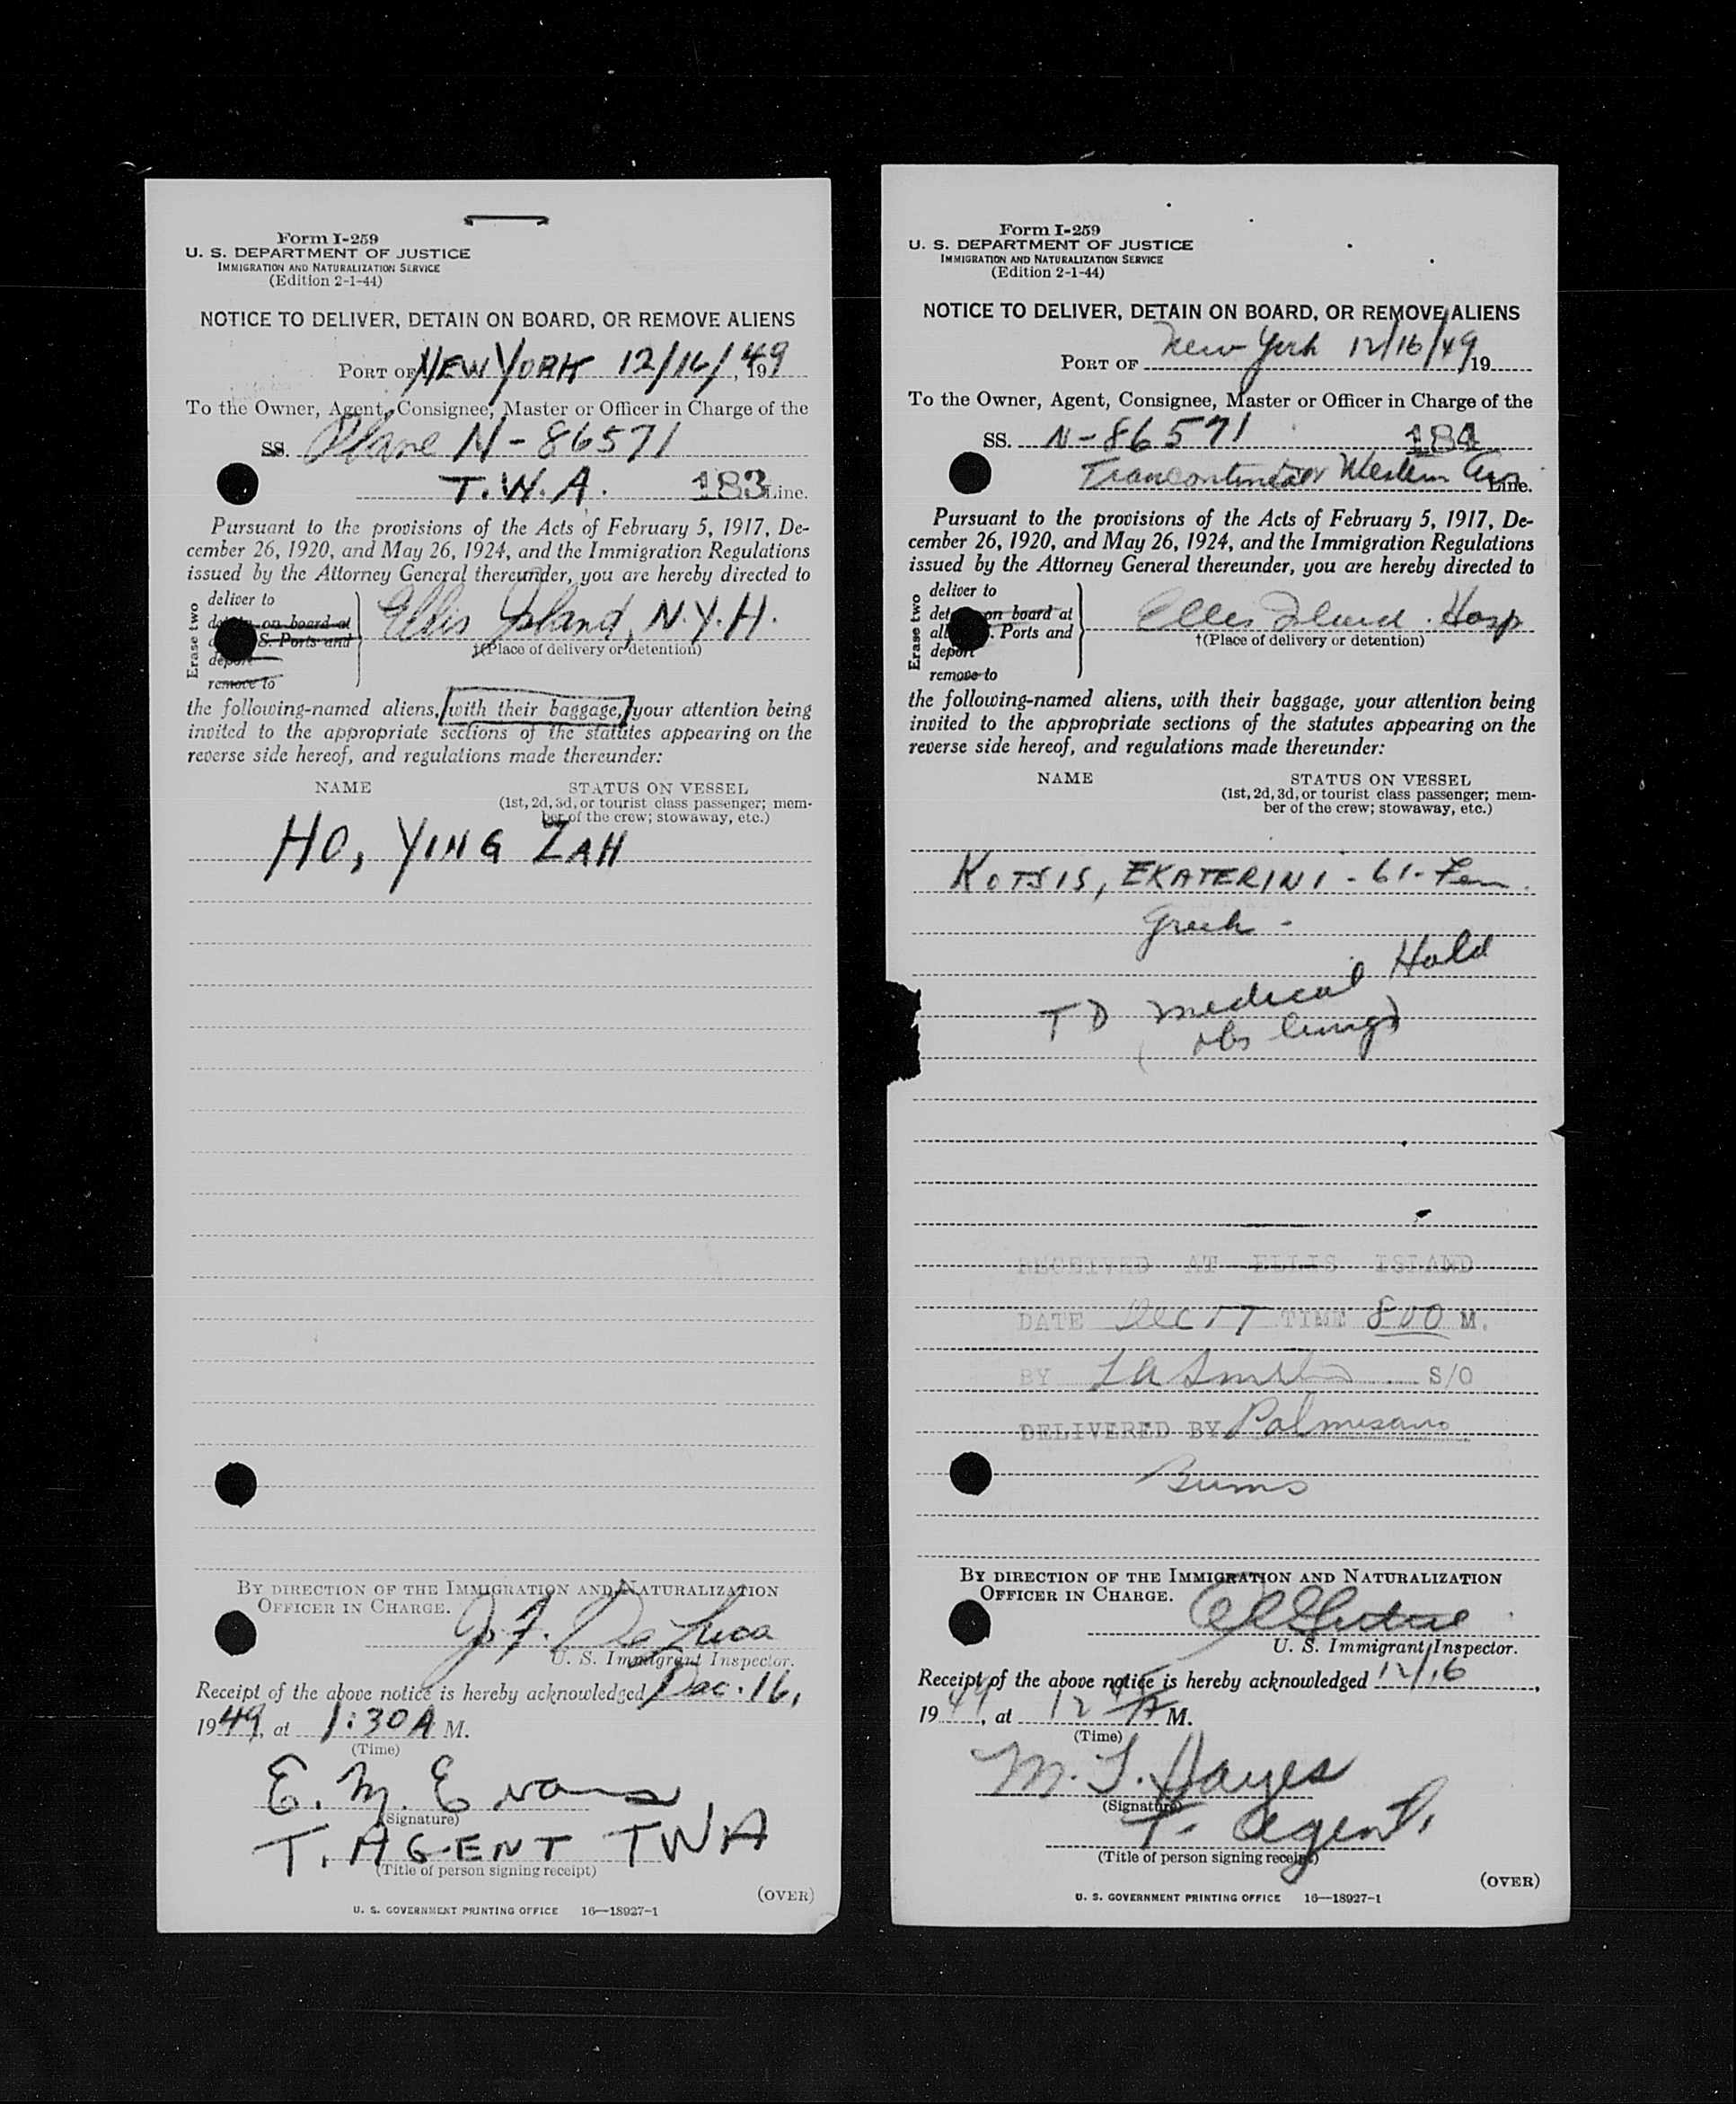 Form I-259
U. S. DEPARTMENT OF JUSTICE
IMMIGRATION AND NATURALIZATION SERVICE
(Edition 2-1-44)
NOTICE TO DELIVER, DETAIN ON BOARD, OR REMOVE ALIENS
PORT OF NEW YORK 12/16/, 1949
To the Owner, Agent, Consignee, Master or Officer in Charge of the
SS. Plane N-86571
T.W.A. 183 Line.
Pursuant to the provisions of the Acts of February 5, 1917, De-
cember 26, 1920, and May 26, 1924, and the Immigration Regulations
issued by the Attorney General thereunder, you are hereby directed to
Erase two
deliver to
on board at
S. Ports and
deport
remove to
Ellis Island, N.Y.H.
†(Place of delivery or detention)
the following-named aliens, with their baggage, your attention being
invited to the appropriate sections of the statutes appearing on the
reverse side hereof, and regulations made thereunder:
NAME STATUS ON VESSEL
(1st, 2d, 3d, or tourist class passenger; mem-
ber of the crew; stowaway, etc.)
HO, YING ZAH
BY DIRECTION OF THE IMMIGRATION AND NATURALIZATION
OFFICER IN CHARGE.
J. F. De Luca
U. S. Immigrant Inspector.
Receipt of the above notice is hereby acknowledged Dec. 16,
1949, at 1:30 A M.
(Time)
E. M. Evans
(Signature)
T. AGENT TWA
(Title of person signing receipt)
(OVER)
U. S. GOVERNMENT PRINTING OFFICE 16—18927-1
Form I-259
U. S. DEPARTMENT OF JUSTICE
IMMIGRATION AND NATURALIZATION SERVICE
(Edition 2-1-44)
NOTICE TO DELIVER, DETAIN ON BOARD, OR REMOVE ALIENS
PORT OF New York 12/16/49, 19
To the Owner, Agent, Consignee, Master or Officer in Charge of the
SS. N-86571 184
Transcontinental Western Line.
Pursuant to the provisions of the Acts of February 5, 1917, De-
cember 26, 1920, and May 26, 1924, and the Immigration Regulations
issued by the Attorney General thereunder, you are hereby directed to
Erase two
deliver to
on board at
Ports and
deport
remove to
Ellis Island Hosp
†(Place of delivery or detention)
the following-named aliens, with their baggage, your attention being
invited to the appropriate sections of the statutes appearing on the
reverse side hereof, and regulations made thereunder:
NAME STATUS ON VESSEL
(1st, 2d, 3d, or tourist class passenger; mem-
ber of the crew; stowaway, etc.)
KOTSIS, EKATERINI - 61 - Fem.
Greek -
TD medical Hold
obs lungs
RECEIVED AT ELLIS ISLAND
DATE Dec 17 TIME 800 M.
BY Smith S/O
DELIVERED BY Palmisano
Burns
BY DIRECTION OF THE IMMIGRATION AND NATURALIZATION
OFFICER IN CHARGE.
U. S. Immigrant Inspector.
Receipt of the above notice is hereby acknowledged 12/16,
1949, at 12 M.
(Time)
M. J. Hayes
(Signature)
T. Agent
(Title of person signing receipt)
(OVER)
U. S. GOVERNMENT PRINTING OFFICE 16—18927-1